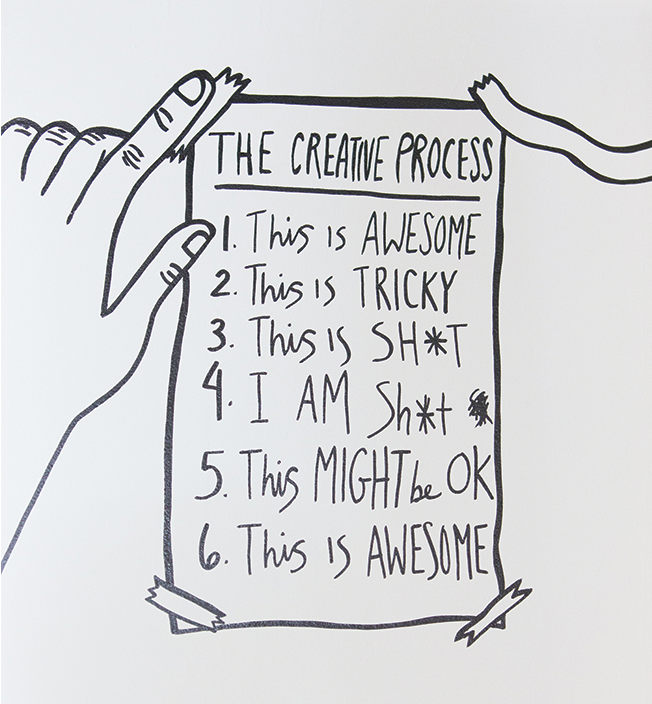 THE CREATIVE PROCESS
1. This is AWESOME
2. This is TRICKY
3. This is SH*T
4. I AM Sh*t
5. This MIGHT be OK
6. This is AWESOME